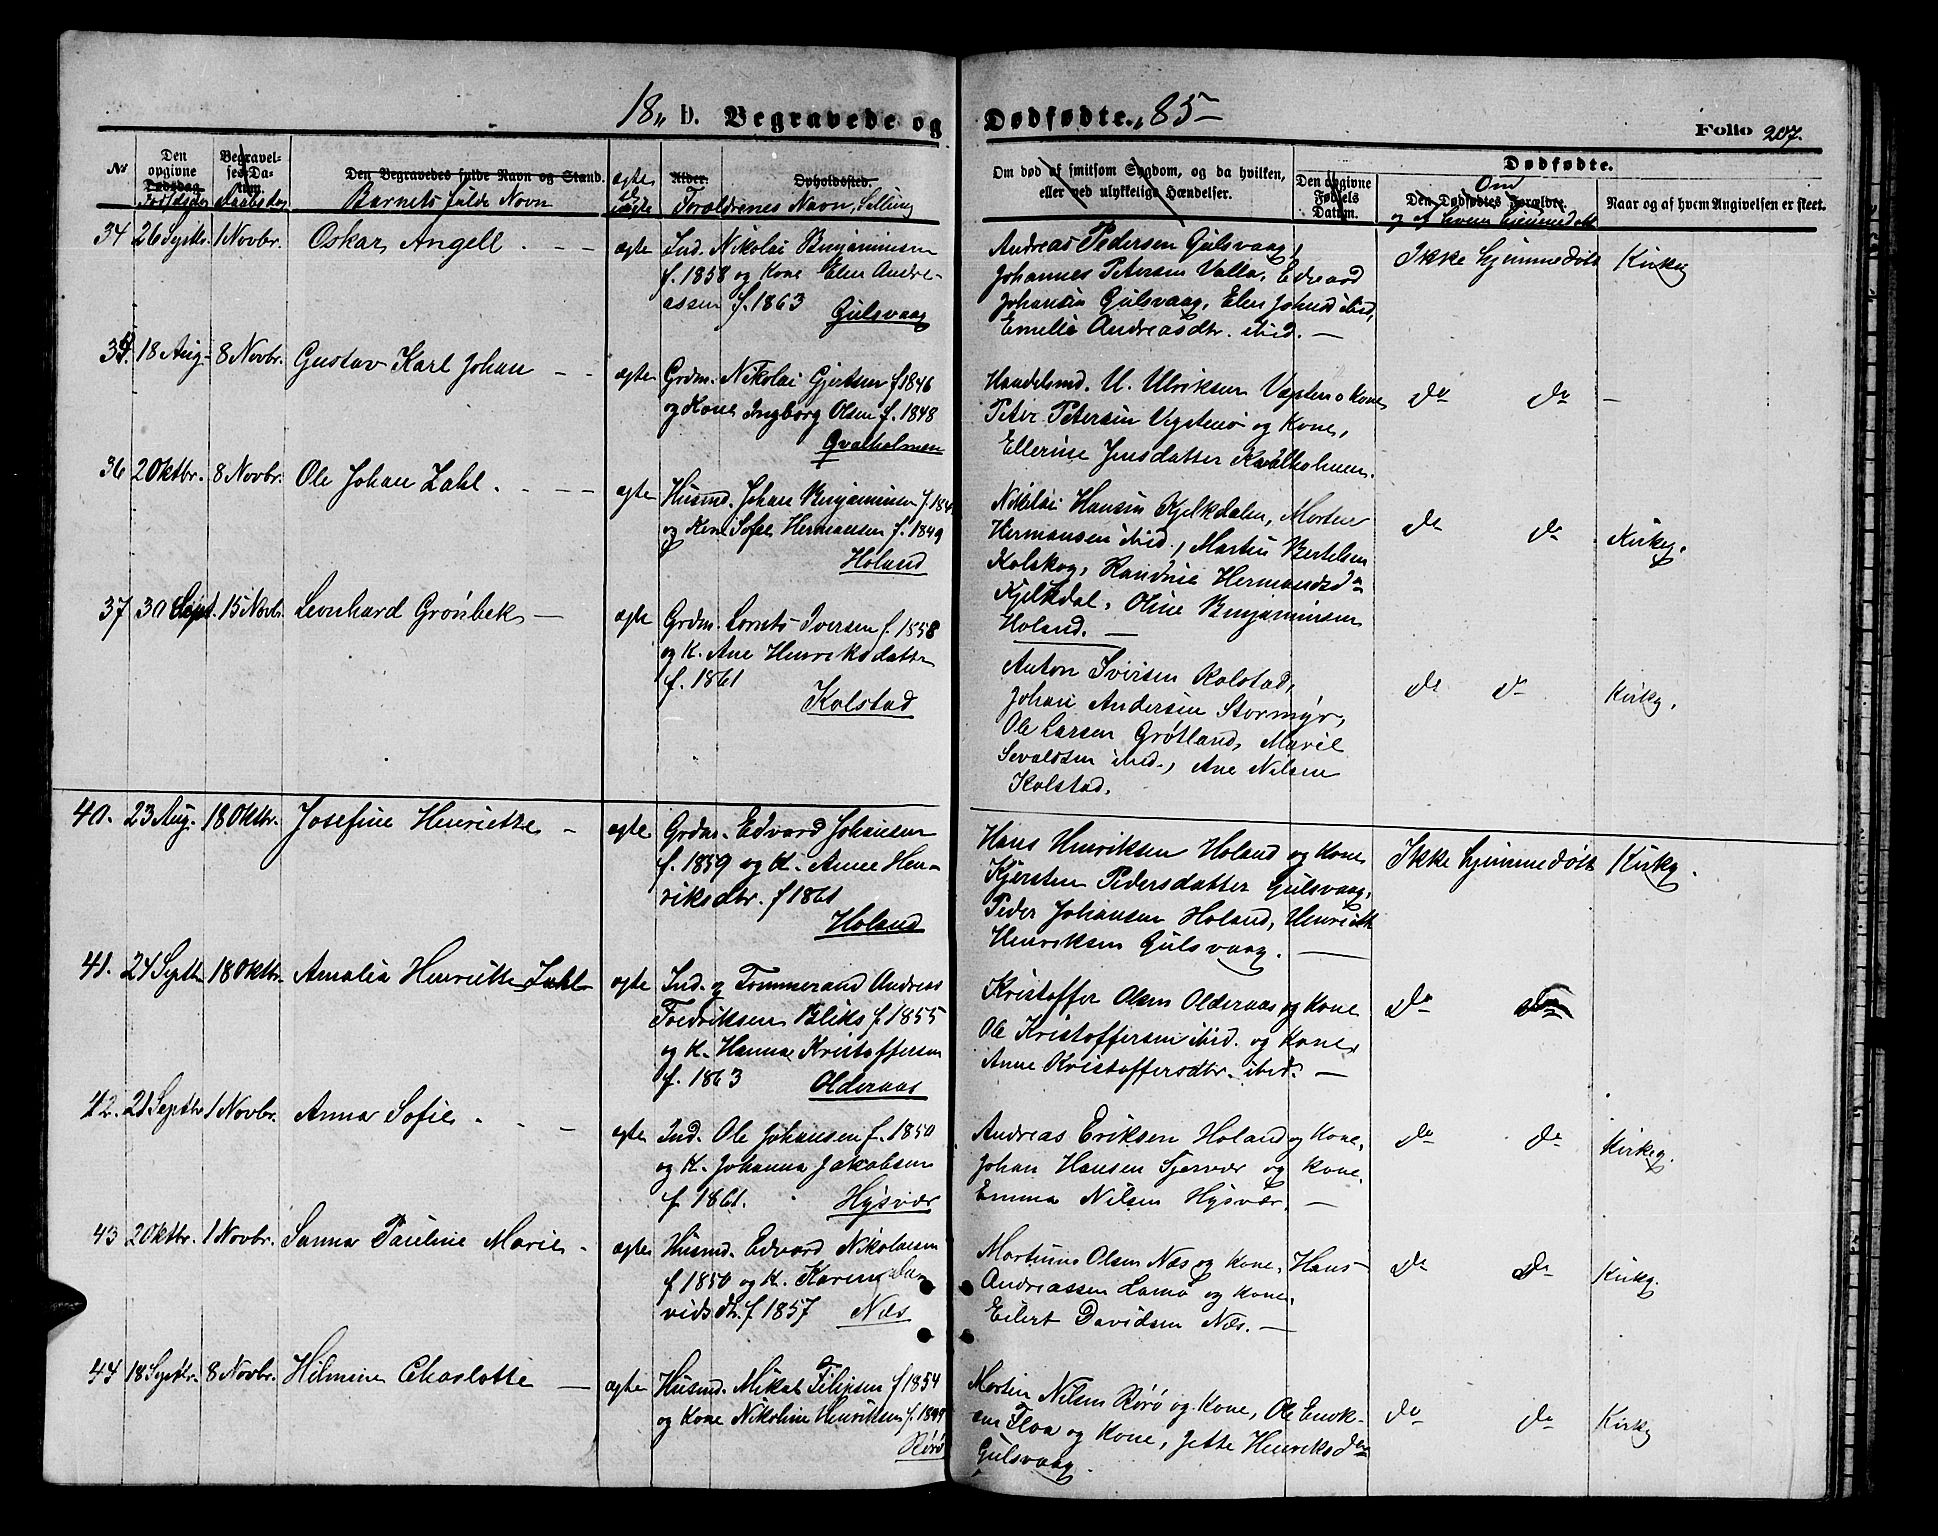 18 b. Begravede og Dødfødte. 85
Folio 207.
No
Den opgivne Dødsdag.
Fødselsdag
Begravelses-Datum.
Daabsdag
Den Begravedes fulde Navn og Stand.
Barnets fulde Navn
ægte
uægte
Alder.
Opholdssted.
Forældrenes Navn, Stilling
Om død af smitsom Sygdom, og da hvilken,
eller ved ulykkelige Hændelser.
Den opgivne Fødsels Datum.
Dødfødte.
Om
Den Dødfødtes Forældre.
og af hvem hjemmedøbt
Naar og af hvem Angivelsen er skeet.
34 26 Septbr. 1 Novbr. Oskar Angell ægte
Ind. Nikolai Benjaminsen
f. 1858 og Kone Elen Andre-
assen f. 1863
Gulsvaag
Andreas Pedersen Gulsvaag,
Johannes Petersen Valla, Edvard
Johansen Gulsvaag, Elen Johnsd ibid,
Emelie Andreasdtr. ibid. —
Ikke hjemmedøbt Kirkeg
35. 18 Aug. 8 Novbr. Gustav Karl Johan ægte
Grdm. Nikolai Gjertsen f 1846
og Kone Ingborg Olsen f. 1848
Qvalholmen
Handelsmd. U. Ulriksen Vegsten o Kone,
Peter Petersen Vegstenø og Kone,
Ellerine Jensdatter Kvalholmen.
do do —
36 2 Oktbr. 8 Novbr. Ole Johan Zahl ægte
Husmd. Johan Benjaminsen f. 184
og Kone Sofie Hermansen f. 1849
Holand
Nikolai Hansen Kjelkdalen, Morten
Hermansen ibid., Martin Bertelsen
Kolskog, Randine Hermansd
Kjelkdal, Oline Benjaminsen
Holand. —
do do Kirkeg.
37 30 Sept. 15 Novbr. Leonhard Grønbek — ægte
Grdm. Lornts Iversen f. 1858
og K. Ane Henriksdatter
f. 1861
Kolstad
Anton Iversen Kolstad,
Johan Andersen Stormyr,
Ole Larsen Grøtland, Marie
Sevaldsen ibid., Ane Nilsen
Kolstad.
do do Kirkeg.
40. 23 Aug. 18 Oktbr. Josefine Henriette — ægte
Grdm. Edvard Johansen
f. 1859 og K. Anne Hen-
riksdtr. f 1861
Holand
Hans Henriksen Holand og Kone
Kjersten Pedersdatter Gulsvaag,
Peder Johansen Holand, Henriette
Henriksen Gulsvaag. —
Ikke hjemmedøbt Kirkg.
41. 24 Septbr 18 Oktbr. Amalia Henriette Zahl ægte
Ind. og Tømmermand Andreas
Fredriksen Bliks f. 1855
og K. Hanna Kristoffersen
f. 1863 Olderaas
Kristoffer Olsen Olderaas og Kone
Ole Kristoffersen ibid. og Kone
Anne Kristoffersdtr. ibid. —
do do
42. 21 Septbr 1 Novbr. Anna Sofie ægte
Ind. Ole Johansen f. 1850
og K. Johanna Jakobsen
f. 1861. Hysvær
Andreas Eriksen Holand og Kone,
Johan Hansen Tjervær og Kone,
Emma Nilsen Hysvær. —
do do Kirkeg.
43 2 Oktbr. 1 Novbr. Sanna Pauline Marie ægte
Husmd. Edvard Nikolaisen
f 1850 og K. Karen Da-
vidsdtr. f 1857 Næs
Martinus Olsen Næs og Kone, Hans
Andreassen Lamø og Kone,
Eilert Davidsen Næs. —
do do Kirkg.
44 18 Septbr. 8 Novbr. Hilmine Charlotte — ægte
Husmd. Mikal Filipsen f 1854
og Kone Nikoline Henriksen f. 1849
Rørø
Martin Nilsen Rørø og Kone, Ole Enok-
sen Floa og Kone, Jette Henriksdtr
Gulsvaag.
do do Kirkg